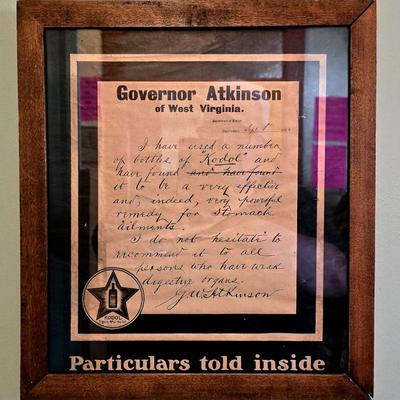 Governor Atkinson
of West Virginia.
Sept 1"
I have used a number
of bottles of "Kodol" and
have found and have found
it to be a very effective
and, indeed, very powerful
remedy for Stomach
ailments.
I do not hesitate to
recommend it to all
persons who have weak
digestive organs.
G.W. Atkinson
KODOL
Particulars told inside